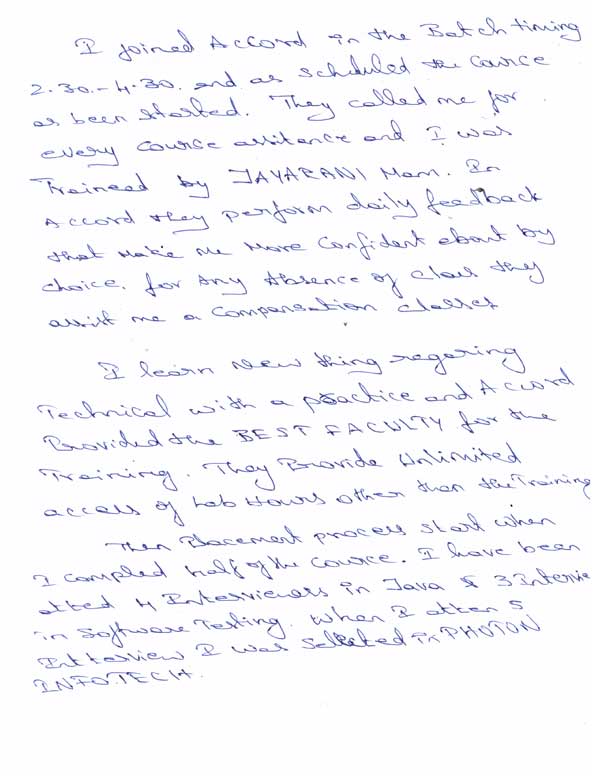 I joined Accord in the Batch timing
2.30.-4.30. and as scheduled the Cource
as been started. They called me for
every Course assitance and I was
Traineed by JAYARANI Mam. In
Accord they perform daily feedback
that make me more Confident about by
choice. for any Absence of class they
assist me a Compensation classes
I learn New thing regering
Technical with a practice and Accord
Provided the BEST FACULTY for the
Training. They Provide Unlimited
access of Lab Hours other than the Training
Then Placement process start when
I compled half of the Cource. I have been
atted 4 Interviewers in Java & 3 Intervie
in Software Testing. When I atten 5
Intterview I was Selected in PHOTON
INFOTECH.